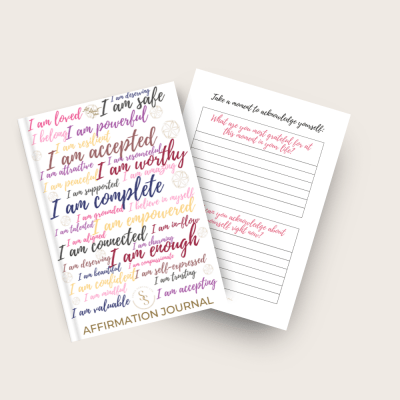 I am deserving
I am loved
I am safe
I belong
I am powerful
I am resilient
I am accepted
I am resourceful
I am attractive
I am worthy
I am peaceful
I am amazing
I am supported
I am complete
I am grounded
I believe in myself
I am talented
I am empowered
I am aligned
I am in-flow
I am connected
I am charming
I am deserving
I am enough
I am compassionate
I am beautiful
I am self-expressed
I am confident
I am trusting
I am mindful
I am accepting
I am valuable
AFFIRMATION JOURNAL
Take a moment to acknowledge yourself:
What are you most grateful for at
this moment in your life?
you acknowledge about
yourself right now?